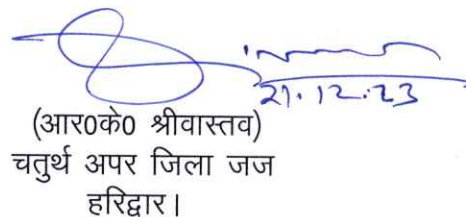 21.12.23
(आर0के0 श्रीवास्तव)
चतुर्थ अपर जिला जज
हरिद्वार।